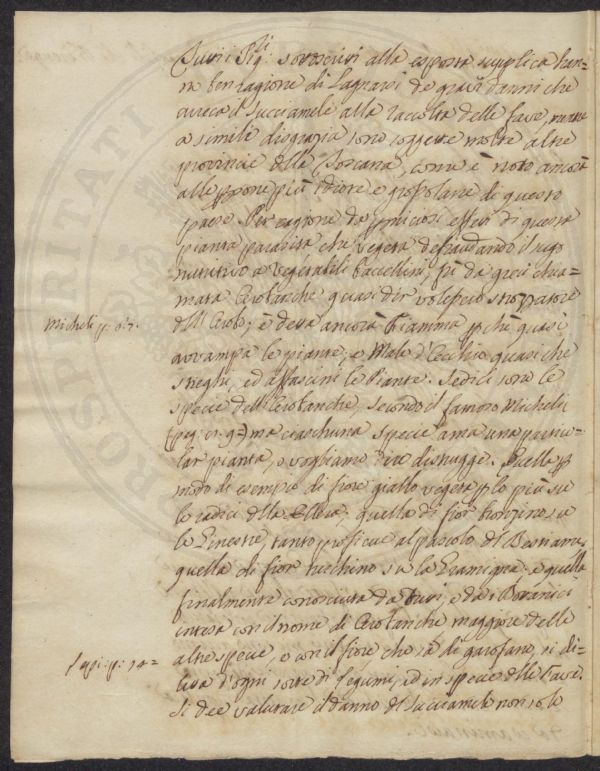 Tutti Pli: sottoscritti alla esposta supplica han-
no ben ragione di Lagnarsi de gravi danni che
arreca il Succiamele alla raccolta delle fave, mentre
a simile disgrazia sono soggette molte altre
provincie della Toscana, come è noto ancora
alle ppone più idiote e grossolane di questo
paese. Per cagione de pniciosi effetti di questa
pianta parasita che vegeta defraudando il sugo
nutritivo a vegetabili baccellini, fu da greci chia-
mata Orobanche quasi dir volessero strozzatore
dell'Orobo; è detta ancora Fiamma pchè quasi
Micheli p: 
avvampa le piante, e Male d'Occhio quasi che
streghi, ed affascini le Piante. Sedici sono le
specie dell'Orobanche, secondo il famoso Micheli
ma ciascheduna specie ama una partico-
lar pianta, o vogliamo dire distrugge. Quella p
modo di esempio di fiore giallo vegeta p lo più su
le radici della Ellera; quella di fior su
le Ginestre, tanto proficue al pascolo del Bestiame,
quella di fior turchino su la Gramigna; e quella
finalmente conosciuta da tutti, e da Botanici
intesa con il nome di Orobanche maggiore delle
altre specie, e con il fiore che sà di garofano, si di-
letta d'ogni sorte di legumi, ed in specie delle Fave.
Si dee valutare il danno del Succiamele non solo